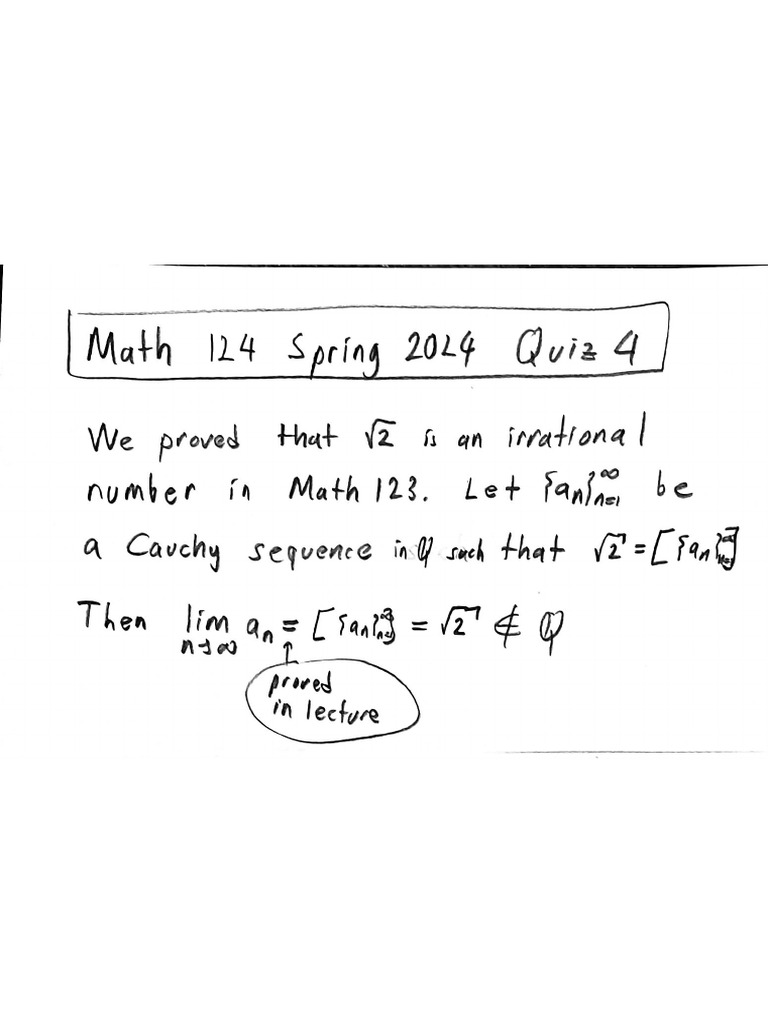 Math 124 Spring 2024 Quiz 4
We proved that √2 is an irrational
number in Math 123. Let {an}∞n=1 be
a Cauchy sequence in ℚ such that √2 = [{an}∞n=1]
Then lim n→∞ an = [{an}∞n=1] = √2 ∉ ℚ
↑
proved
in lecture